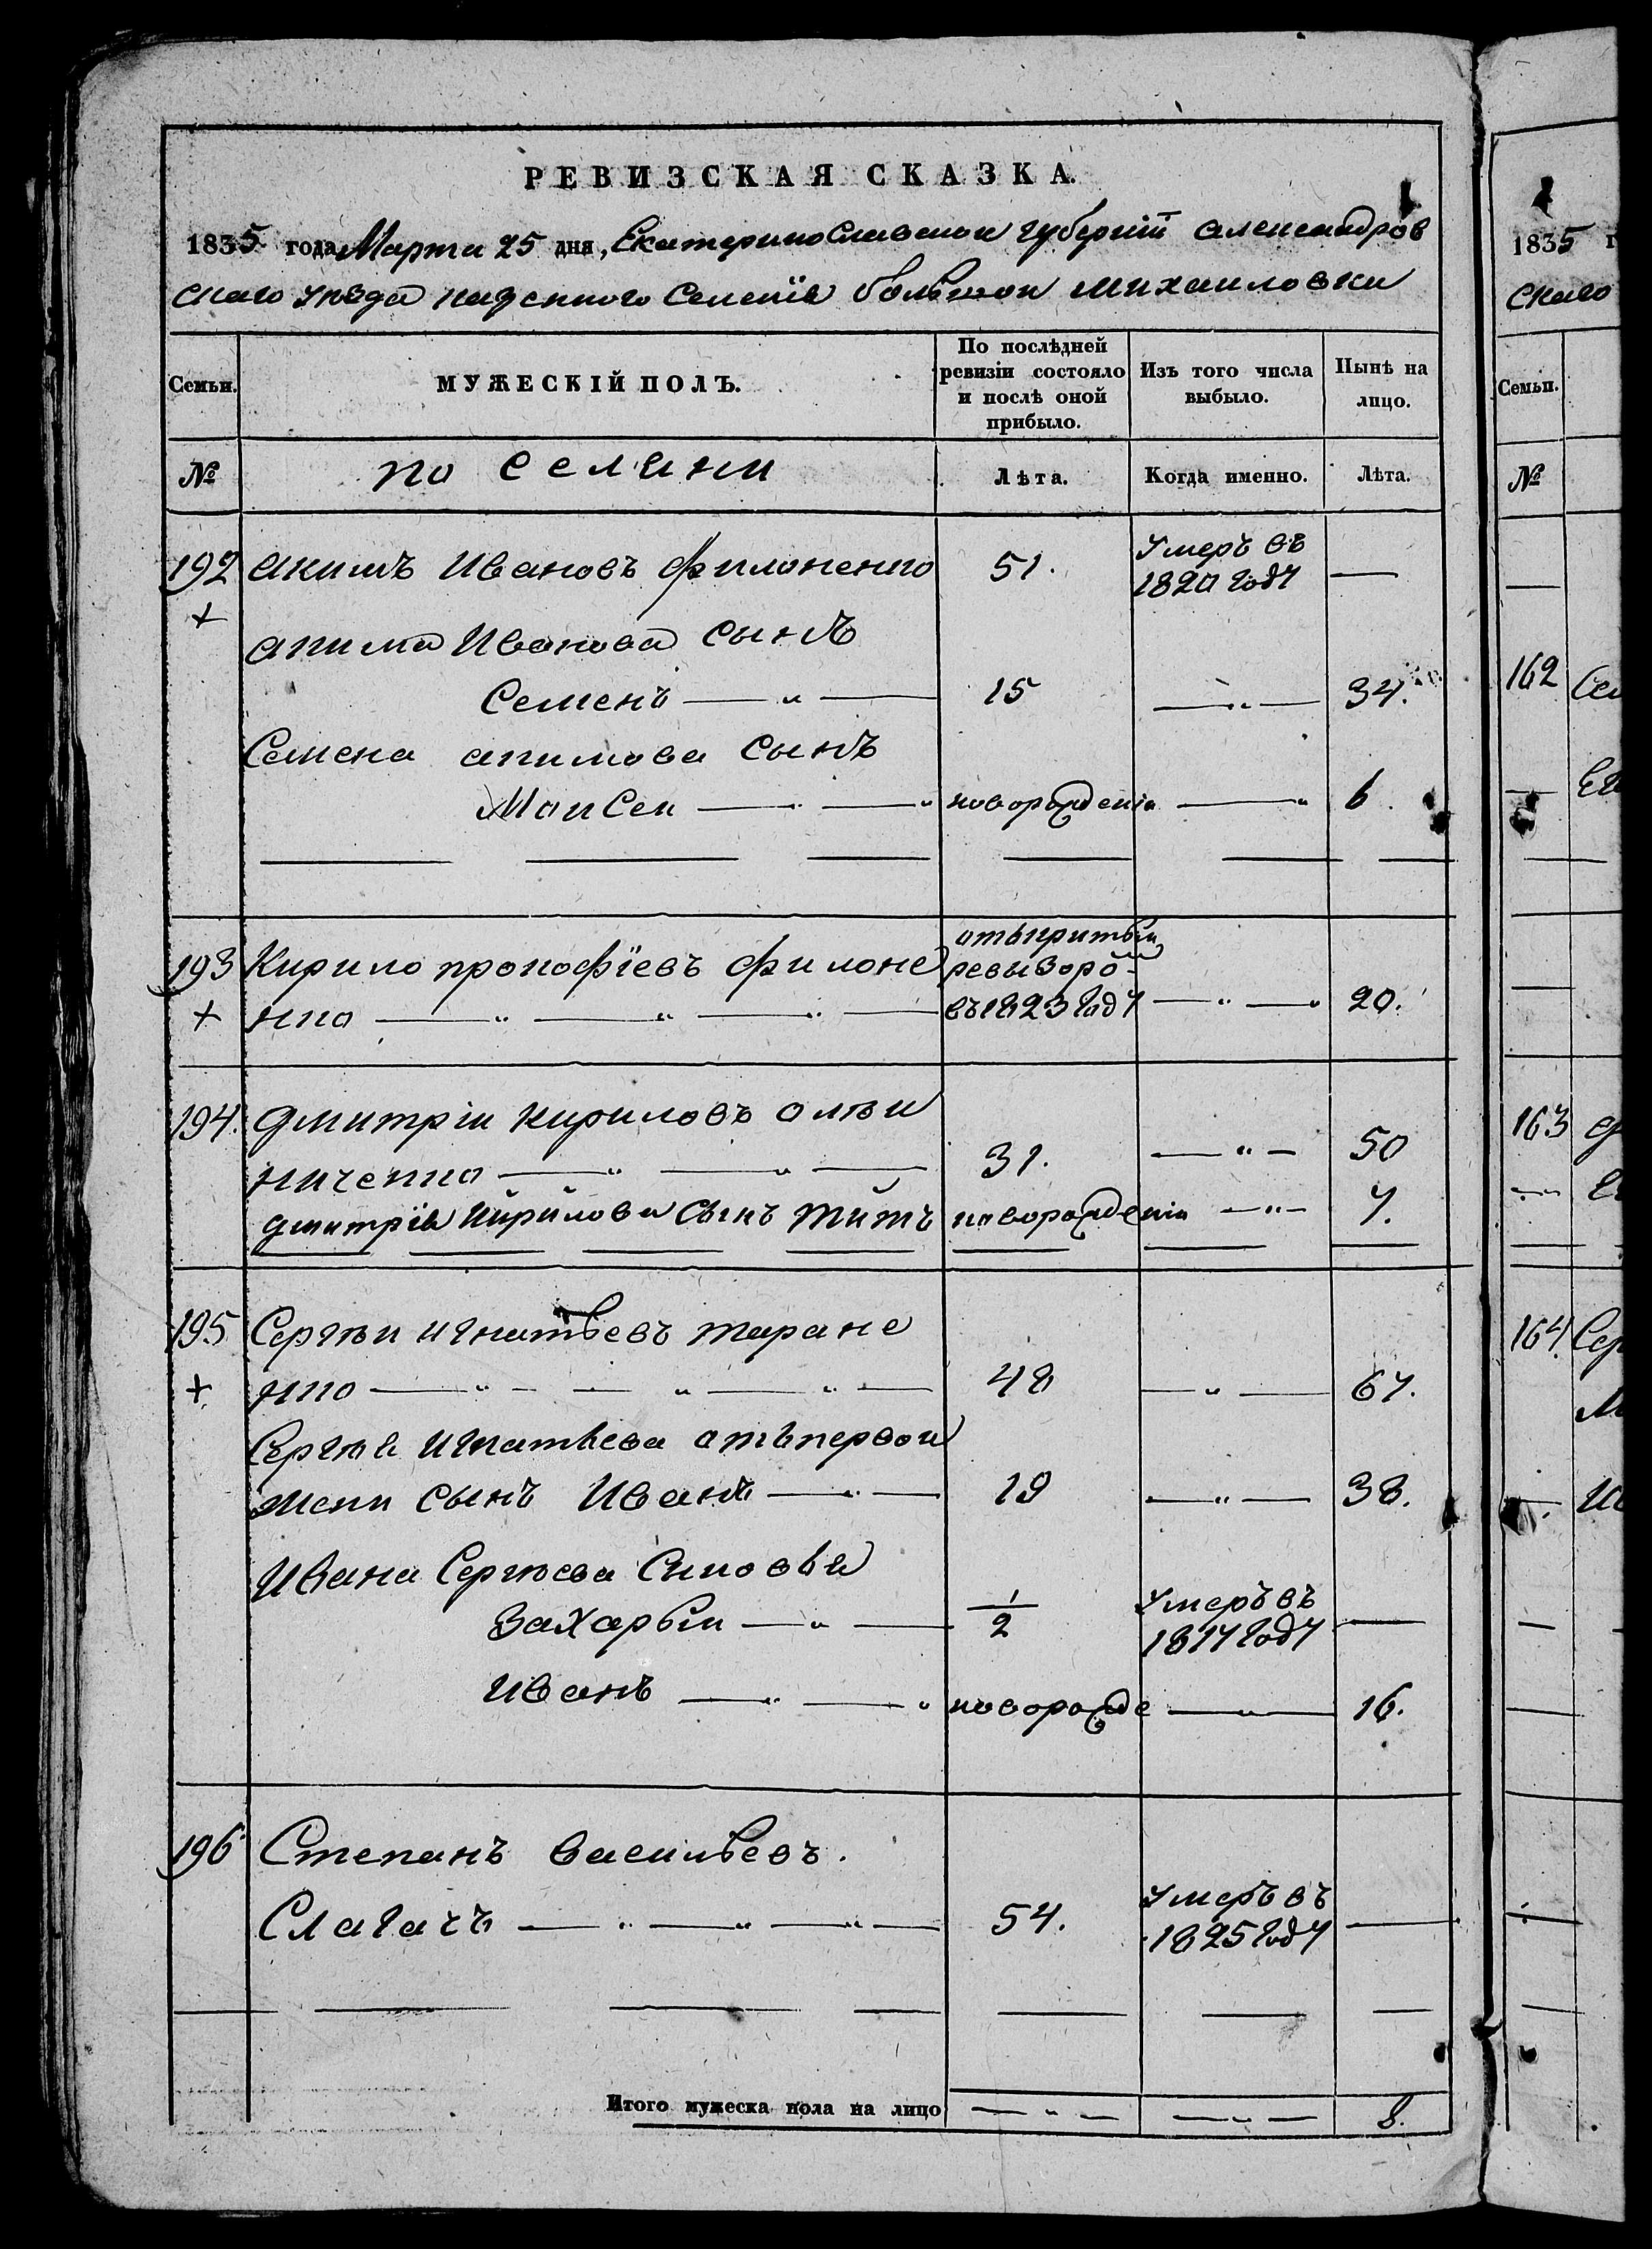 РЕВИЗСКАЯ СКАЗКА.
1835 года Марта 25 дня, Екатеринославской губернiи Александров
скаго уезда казенного Селенiя большой михаиловки
Семьи.
МУЖЕСКІЙ ПОЛЪ.
По послѣдней ревизіи состояло и послѣ оной прибыло.
Изъ того числа выбыло.
Нынѣ на лицо.
№
Лѣта.
Когда именно.
Лѣта.
192 акимъ Ивановъ филоненко 51. умеръ въ 1820 году —
+
акима Иванова сынъ
Семенъ — " — 15 — " — 34.
Семена акимова сынъ
Моисей — " — " новорожденiи — " 6.
193 Кирило прокофiевъ филоне
+ нко — " — " — " — въ 1823 году — " — " 20.
194. дмитрiи кириловъ олѣи
ниченко — " — " — 31. — " — 50
дмитрiя Кирилова сынъ титъ новорожденiи — " — 7.
195 Сергѣи игнатьевъ таране
+ нко — " — — " — " — 48 — " — 67.
Сергѣя игнатьева отъ первой
жени сынъ Иванъ — " — 19 — " — 38.
Ивана Сергѣева Сыновья
Захарьiи — " — 1/2 умеръ въ 1817 году —
иванъ — " — " новорожде — " — 16.
196 Степанъ васильевъ.
Слагачъ — " — " — " — 54. умеръ въ 1825 году —
Итого мужеска пола на лицо — " — — " — 8.
1835 г
скаго
Семьи.
№
162 Сем
163
164. Сер